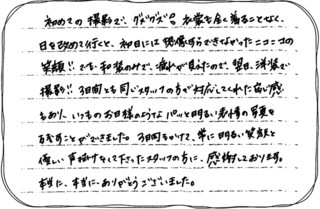 初めての撮影で、グズグズ。衣装を全く着ることなく、
日を改めて行くと、初日には想像すらできなかったニコニコの
笑顔!! でも和装のみで、疲れが見えたので、翌日、洋装で
撮影!! 3日間とも同じスタッフの方が対応してくれた安心感
もあり、いつものお日様のようなパッと明るい表情の写真を
残すことができました。3日間もかけて、常に明るい笑顔と
優しい声掛けをして下さったスタッフの方に、感謝しております。
本当に、本当に、ありがとうございました。